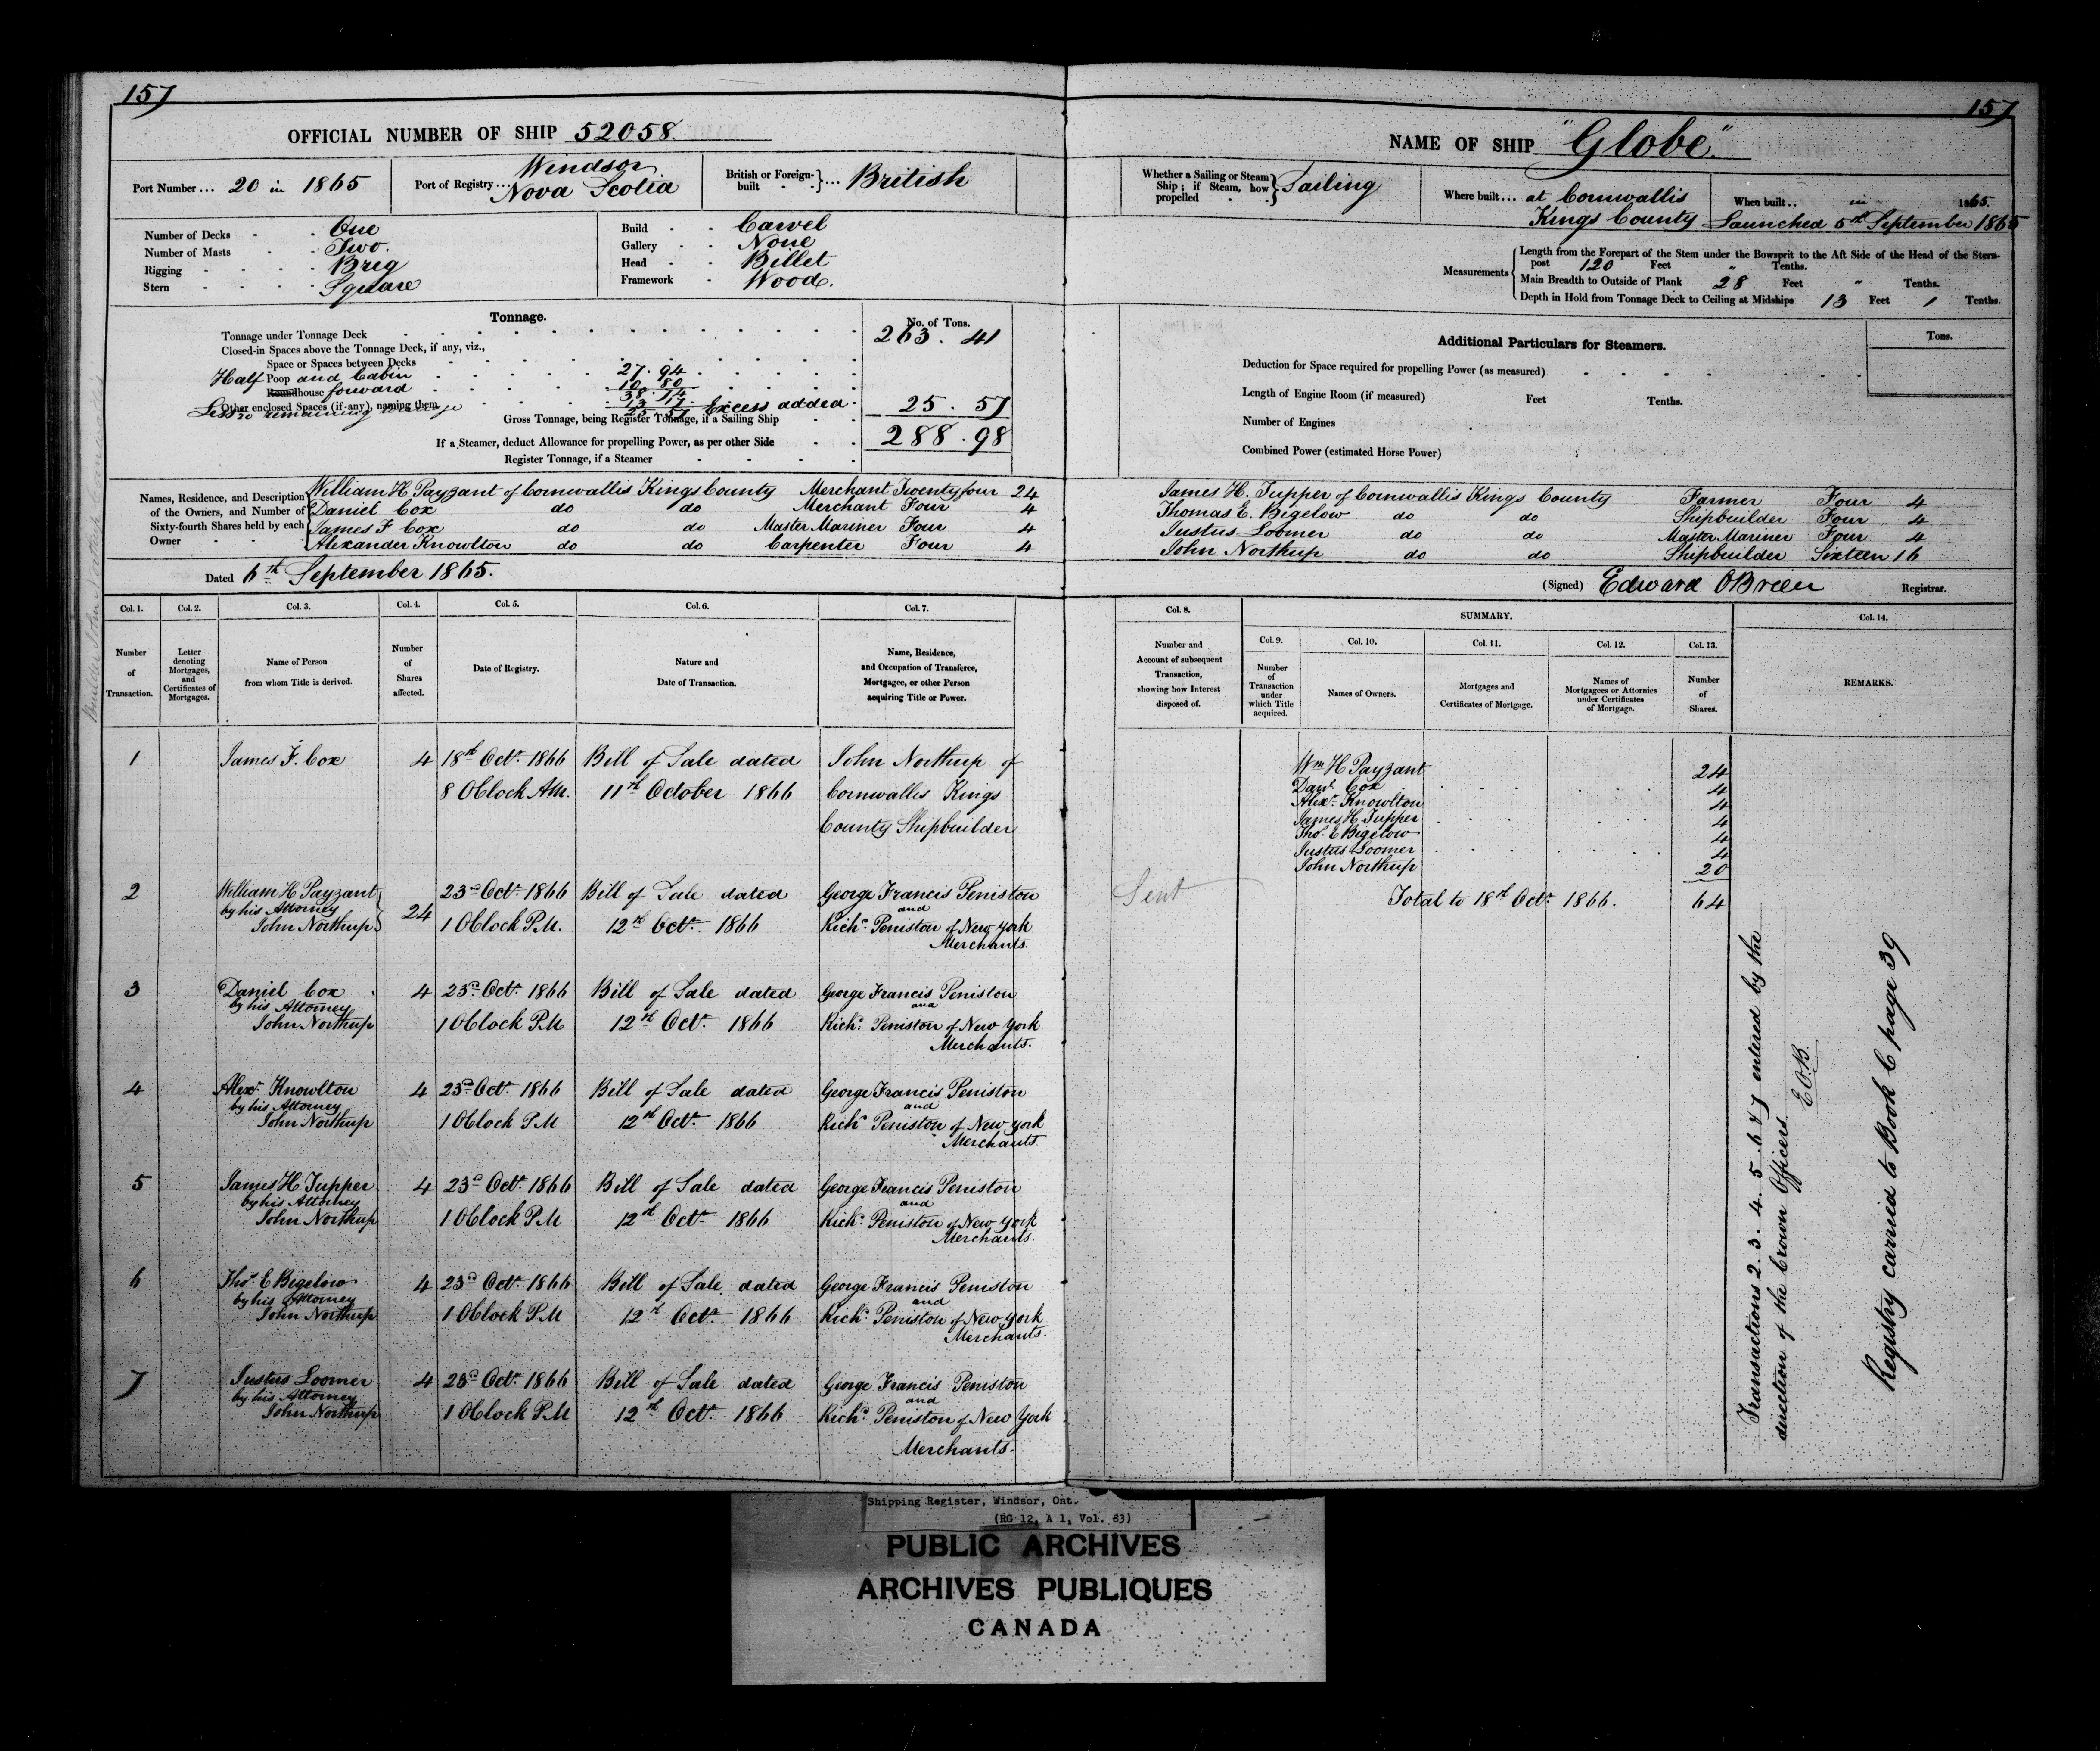 157
OFFICIAL NUMBER OF SHIP 52058.
Port Number... 20 in 1865
Port of Registry... Windsor
Nova Scotia
British or Foreign-built ... British
Number of Decks One
Number of Masts Two.
Rigging Brig
Stern Square
Build Carvel
Gallery None
Head Billet
Framework Wood.
Tonnage.
No. of Tons.
Tonnage under Tonnage Deck 263. 41
Closed-in Spaces above the Tonnage Deck, if any, viz.,
Space or Spaces between Decks
Half Poop and Cabin 27. 94
Roundhouse forward 10. 80
38. 74
Other enclosed Spaces (if any), naming them
Less remaining 13. 17
25. 57 Excess added 25. 57
Gross Tonnage, being Register Tonnage, if a Sailing Ship 288. 98
If a Steamer, deduct Allowance for propelling Power, as per other Side
Register Tonnage, if a Steamer
Names, Residence, and Description of the Owners, and Number of Sixty-fourth Shares held by each Owner
William H Payzant of Cornwallis Kings County Merchant Twenty four 24
Daniel Cox do do Merchant Four 4
James F Cox do do Master Mariner Four 4
Alexander Knowlton do do Carpenter Four 4
Dated 6th September 1865.
Col. 1. Col. 2. Col. 3. Col. 4. Col. 5. Col. 6. Col. 7.
Number of Transaction.
Letter denoting Mortgages, and Certificates of Mortgages.
Name of Person from whom Title is derived.
Number of Shares affected.
Date of Registry.
Nature and Date of Transaction.
Name, Residence, and Occupation of Transferee, Mortgagee, or other Person acquiring Title or Power.
1 James F. Cox 4 18th Octr. 1866 Bill of Sale dated John Northup of
8 OClock AM. 11th October 1866 Cornwallis Kings
County Shipbuilder
2 William H Payzant 24 23rd Octr. 1866 Bill of Sale dated George Francis Peniston
by his Attorney and
John Northup 1 OClock P.M. 12th Octr. 1866 Richd. Peniston of New York
Merchants.
3 Daniel Cox 4 23rd Octr. 1866 Bill of Sale dated George Francis Peniston
by his Attorney and
John Northup 1 OClock P.M 12th Octr. 1866 Richd. Peniston of New York
Merchants.
4 Alexr. Knowlton 4 23rd Octr. 1866 Bill of Sale dated George Francis Peniston
by his Attorney and
John Northup 1 OClock P.M 12th Octr. 1866 Richd. Peniston of New York
Merchants.
5 James H Tupper 4 23rd Octr. 1866 Bill of Sale dated George Francis Peniston
by his Attorney and
John Northup 1 OClock P.M 12th Octr. 1866 Richd. Peniston of New York
Merchants.
6 Thos. E Bigelow 4 23rd Octr. 1866 Bill of Sale dated George Francis Peniston
by his Attorney and
John Northup 1 OClock P.M 12th Octr. 1866 Richd. Peniston of New York
Merchants.
7 Justus Loomer 4 23rd Octr. 1866 Bill of Sale dated George Francis Peniston
by his Attorney and
John Northup 1 OClock P.M 12th Octr. 1866 Richd. Peniston of New York
Merchants.
157
NAME OF SHIP "Globe".
Whether a Sailing or Steam Ship; if Steam, how propelled Sailing
Where built... at Cornwallis
Kings County
When built.. in 1865.
Launched 5th September 1865
Measurements
Length from the Forepart of the Stem under the Bowsprit to the Aft Side of the Head of the Stern-
post 120 Feet " Tenths.
Main Breadth to Outside of Plank 28 Feet " Tenths.
Depth in Hold from Tonnage Deck to Ceiling at Midships 13 Feet 1 Tenths.
Additional Particulars for Steamers.
Tons.
Deduction for Space required for propelling Power (as measured)
Length of Engine Room (if measured) Feet Tenths.
Number of Engines
Combined Power (estimated Horse Power)
James H. Tupper of Cornwallis Kings County Farmer Four 4
Thomas E. Bigelow do do Shipbuilder Four 4
Justus Loomer do do Master Mariner Four 4
John Northup do do Shipbuilder Sixteen 16
(Signed) Edward OBrien Registrar.
Col. 8. SUMMARY. Col. 14.
Col. 9. Col. 10. Col. 11. Col. 12. Col. 13.
Number and Account of subsequent Transaction, showing how Interest disposed of.
Number of Transaction under which Title acquired.
Names of Owners.
Mortgages and Certificates of Mortgage.
Names of Mortgagees or Attornies under Certificates of Mortgage.
Number of Shares.
REMARKS.
Wm H Payzant 24
Danl. Cox 4
Alexr. Knowlton 4
James H. Tupper 4
Thos. E Bigelow 4
Justus Loomer 4
John Northup 20
Sent
Total to 18th Octr. 1866. 64
Transactions 2. 3. 4. 5. 6 & 7 entered by the
direction of the Crown Officers.
E.O.B.
Registry carried to Book C page 39
Shipping Register, Windsor, Ont.
(RG 12, A 1, Vol. 83)
PUBLIC ARCHIVES
ARCHIVES PUBLIQUES
CANADA